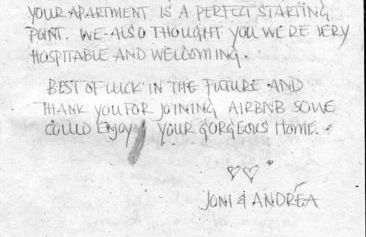 YOUR APARTMENT IS A PERFECT STARTING
POINT. WE ALSO THOUGHT YOU WERE VERY
HOSPITABLE AND WELCOMING.
BEST OF LUCK IN THE FUTURE AND
THANK YOU FOR JOINING AIRBNB SO WE
COULD ENJOY YOUR GORGEOUS HOME.
♡♡
JONI & ANDRÉA